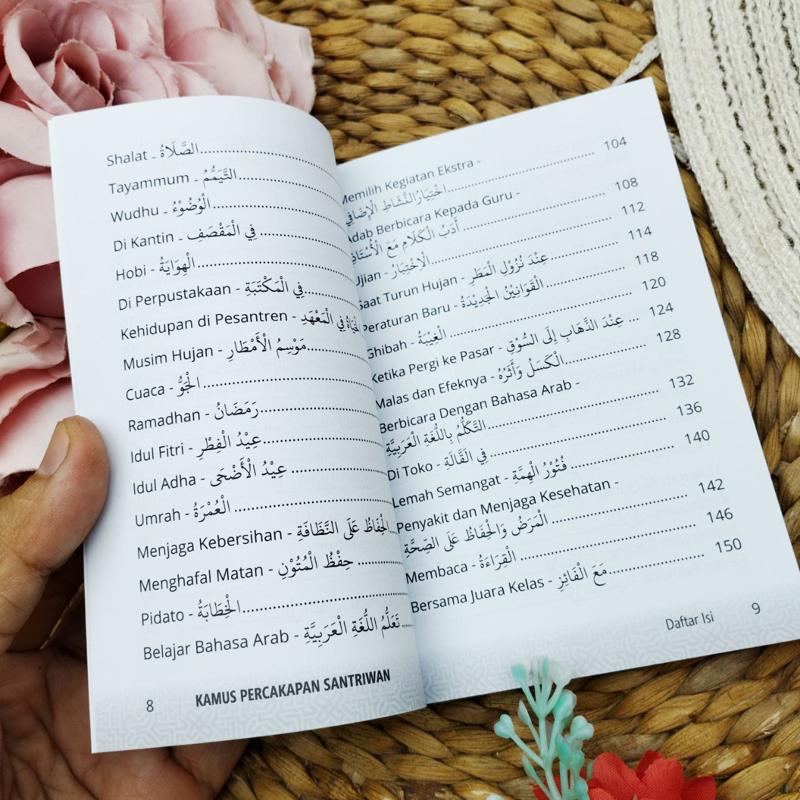 Shalat - الصَّلَاةُ
Tayammum - التَّيَمُّمُ
Wudhu - الْوُضُوْءُ
Di Kantin - فِي الْمَقْصَفِ
Hobi - الْهِوَايَةُ
Di Perpustakaan - فِي الْمَكْتَبَةِ
Kehidupan di Pesantren - فِي الْمَعْهَدِ
Musim Hujan - مَوْسِمُ الْأَمْطَارِ
Cuaca - الْجَوُّ
Ramadhan - رَمَضَانُ
Idul Fitri - عِيْدُ الْفِطْرِ
Idul Adha - عِيْدُ الْأَضْحَى
Umrah - الْعُمْرَةُ
Menjaga Kebersihan - الْحِفَاظُ عَلَى النَّظَافَةِ
Menghafal Matan - حِفْظُ الْمُتُوْنِ
Pidato - الْخِطَابَةُ
Belajar Bahasa Arab - تَعَلُّمُ اللُّغَةِ الْعَرَبِيَّةِ
8 KAMUS PERCAKAPAN SANTRIWAN
Memilih Kegiatan Ekstra -
اخْتِيَارُ النَّشَاطِ الْإِضَافِيِّ 104
Adab Berbicara Kepada Guru -
أَدَبُ الْكَلَامِ مَعَ الْأُسْتَاذِ 108
Ujian - الْاِخْتِبَارُ 112
Saat Turun Hujan - عِنْدَ نُزُوْلِ الْمَطَرِ 114
Peraturan Baru - الْقَوَانِيْنُ الْجَدِيْدَةُ 118
Ghibah - الْغِيْبَةُ 120
Ketika Pergi ke Pasar - عِنْدَ الذَّهَابِ إِلَى السُّوْقِ 124
Malas dan Efeknya - الْكَسَلُ وَأَثَرُهُ 128
Berbicara Dengan Bahasa Arab -
التَّكَلُّمُ بِاللُّغَةِ الْعَرَبِيَّةِ 132
Di Toko - فِي الْبَقَّالَةِ 136
Lemah Semangat - فُتُوْرُ الْهِمَّةِ 140
Penyakit dan Menjaga Kesehatan -
الْمَرَضُ وَالْحِفَاظُ عَلَى الصِّحَّةِ 142
Membaca - الْقِرَاءَةُ 146
Bersama Juara Kelas - مَعَ الْفَائِزِ 150
Daftar Isi 9